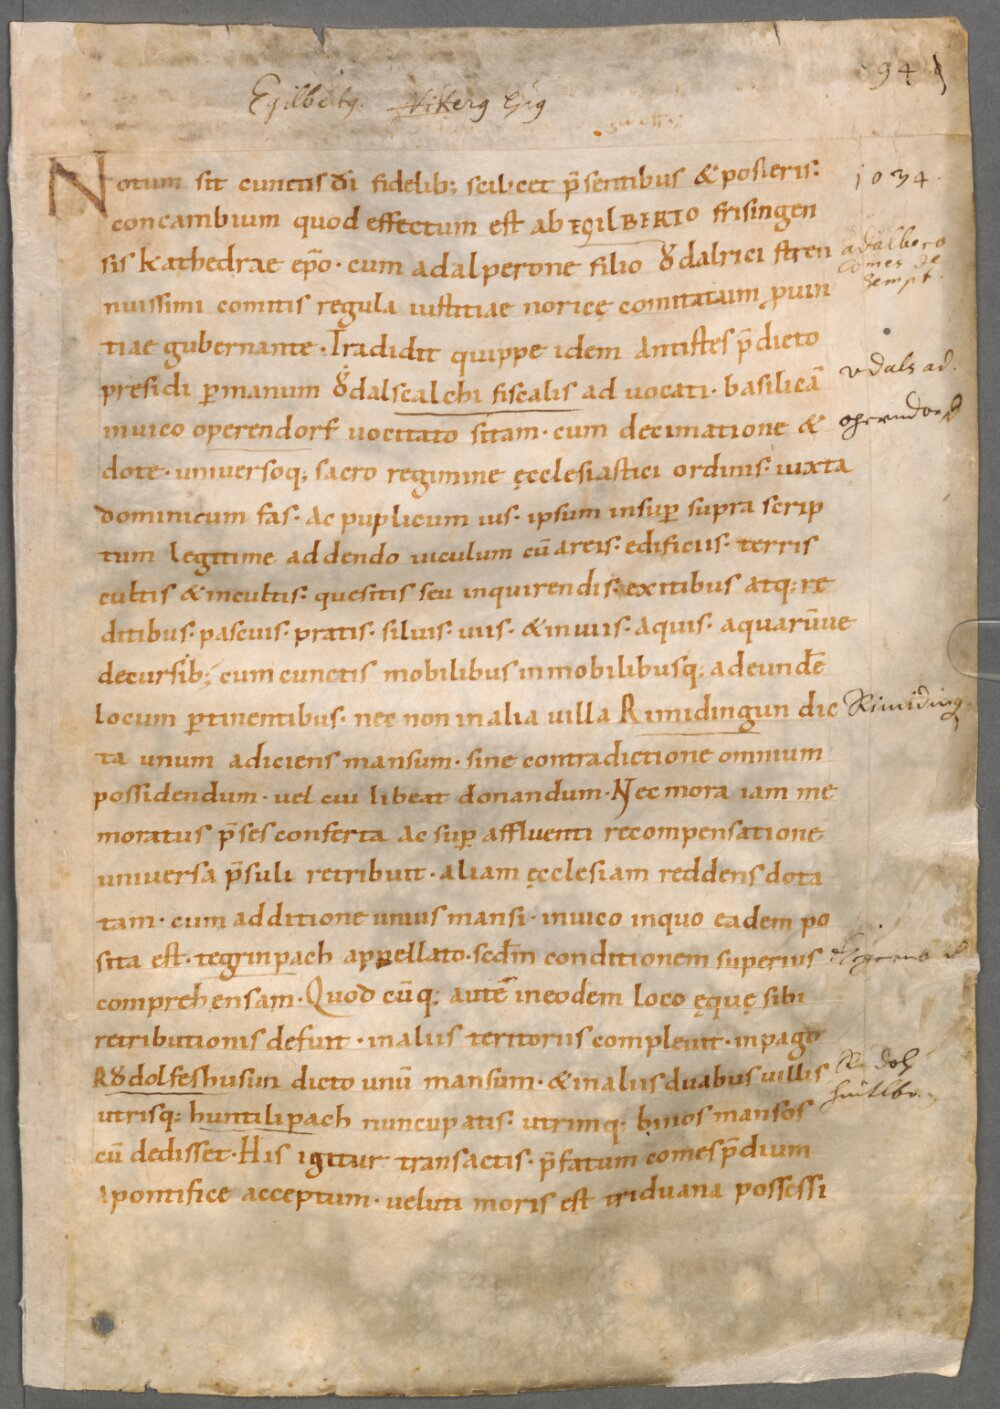 94
Egilbertg.
Notum sit cunctis dī fidelib; scilicet p̄sentibus & posteris.
concambium quod effectum est ab EGILBERTO frisingen
sis kathedrae ep̄o. cum adalperone filio Ȣdalrici stren
nuissimi comitis regula iustitiae noricę comitatum ꝓuin
tiae gubernante. Tradidit quippe idem Antistes p̄dicto
presidi ꝑ manum Ȣdalscalchi fiscalis ad uocati. basilicā
in uico operendorf uocitato sitam. cum decimatione &
dote. universoq; sacro regimine ęcclesiastici ordinis. iuxta
dominicum fas. ac puplicum ius. ipsum insuꝑ supra scrip
tum legitime addendo uiculum cū areis. edificiis. terris
cultis & incultis. quesitis seu inquirendis. exitibus atq; re
ditibus. pascuis. pratis. siluis. uiis. & inuiis. Aquis. aquarūue
decursib; cum cunctis mobilibus inmobilibusq; ad eundē
locum ꝑtinentibus. nec non in alia uilla Rimidingun dic
ta unum adiciens mansum. sine contradictione omnium
possidendum. uel cui libeat donandum. Nec mora iam me
moratus p̄ses conferta ac suꝑ affluenti recompensatione
universa p̄suli retribuit. aliam ęcclesiam reddens dota
tam. cum additione unius mansi. in uico in quo eadem po
sita est. tegrinpach appellato. scdm̄ conditionem superius
comprehensam. Quod cūq; autē in eodem loco ęquę sibi
retributionis defuit. in aliis territoriis compleuit. in pago
RȢdolfeshusun dicto unū mansum. & in aliis duabus uillis
utrisq; huntilipach nuncupatis. utrimq; binos mansos
cū dedisset. His igitur transactis. p̄fatum comes p̄dium
A pontifice acceptum. veluti moris est triduana possessi
1034.
adalbero
comes de
Sempt.
vdals ad.
operndorf
Rimiding